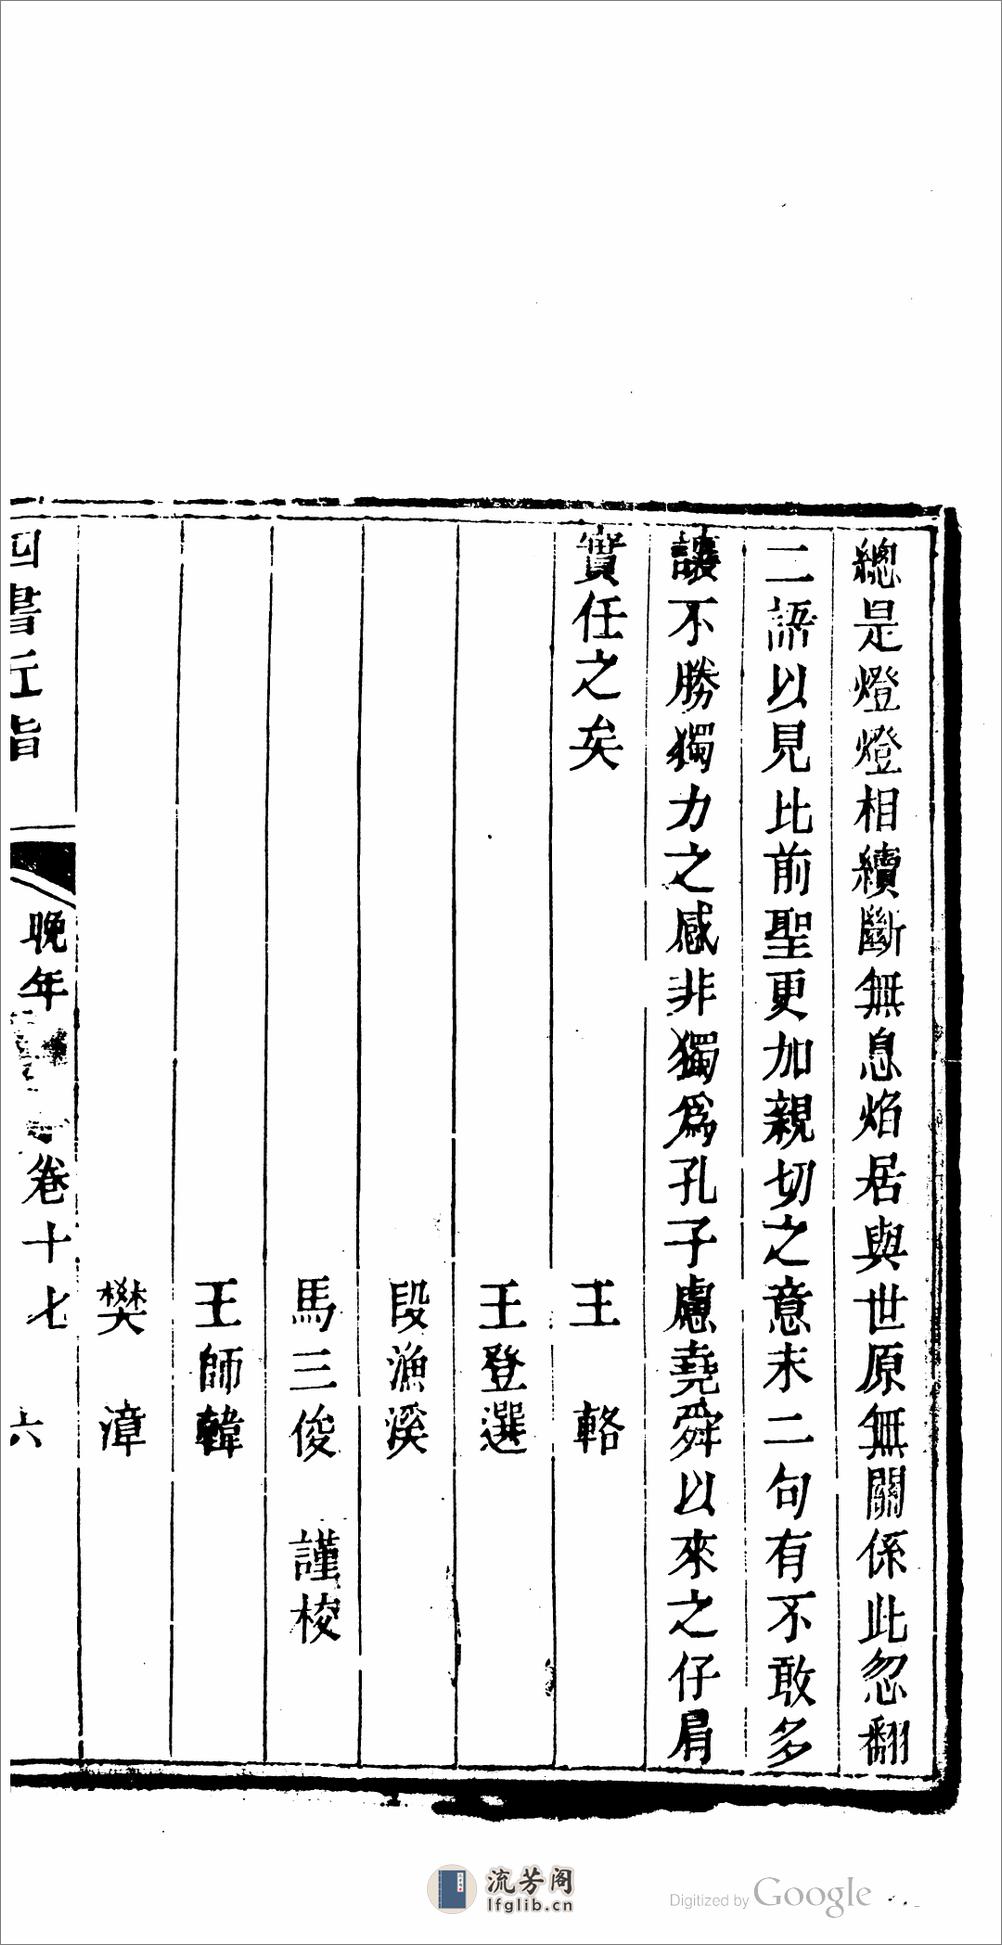 總是燈燈相續斷無息焰居與世原無關係此忽翻
二語以見比前聖更加親切之意末二句有不敢多
讓不勝獨力之感非獨爲孔子慮堯舜以來之仔肩
實任之矣
王輅
王登選
段漁溪
馬三俊 謹校
王師韓
樊漳
四書近指
晚年
卷十七 六
流芳阁
lfglib.cn
Digitized by Google